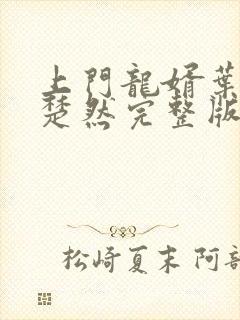 上門龍婿葉
楚然完整版
松崎夏末 阿部